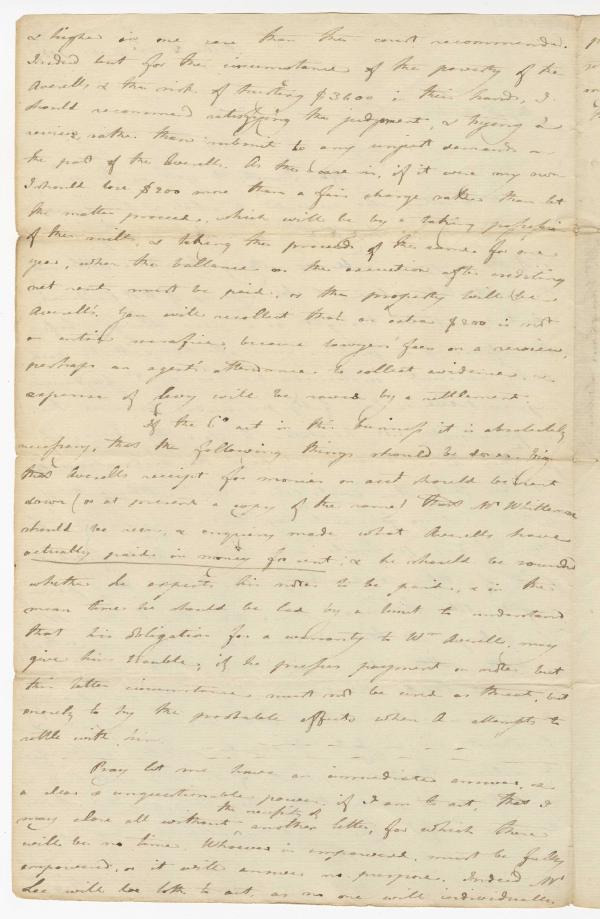 & higher in one case than the court recommended.
Indeed but for the circumstance of the poverty of the
Averells & the risk of trusting $3600 in their hands, I
should recommend the judgment, & trying a
review, rather than submit to any unjust demands on
the part of the Averells. As the case is, if it were my own
I should lose $200 more than a fair charge rather than let
the matter proceed, which will be by a taking possession
of the mills, & taking the proceeds of the same for one
year, when the ballance on the execution after crediting
net rents must be paid, or the property will be
Averells'. You will recollect that an extra $200 is not
an entire sacrifice, because lawyers' fees on a review,
perhaps an agent's attendance to collect evidence,
expense of levy will be saved by a settlement.
If the Co act in this business it is absolutely
necessary, that the following things should be done. Viz
that Averells receipt for monies on acct should be sent
down (or at present a copy of the same) that Mr
should be seen, & enquiry made what Averells have
actually paid in money for rent; & he should be sounded
whether he expects his notes to be paid, & in the
mean time he should be led by a hint to understand
that his obligation for a warranty to Wm Averell, may
give him trouble, if he presses payment on notes but
this latter circumstance must not be used as threat, but
merely to try the probable effects when A attempts to
settle with him.
Pray let me have an immediate answer, &
a clear & unquestionable power, if I am to act, that I
may close all without the necessity of another letter, for which there
will be no time. Whoever is impowered, must be fully
empowered, or it will answer no purpose. Indeed Mr
Lee will be loth to act, as no one will individually